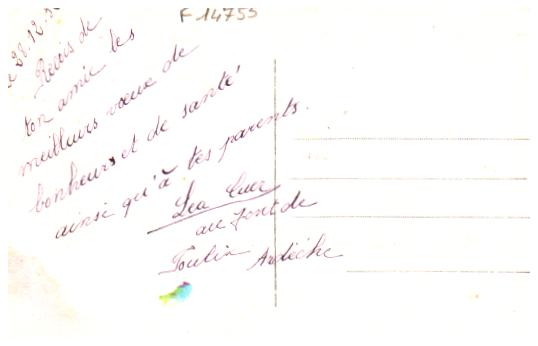 F 14755
le 28.12.3
Reçois de
ton amie les
meilleurs vœux de
bonheurs et de santé
ainsi qu'à tes parents.
Léa
au Pont de
Ardèche